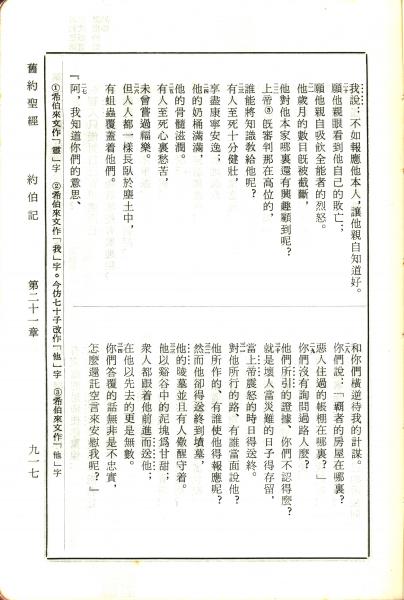 我說：不如報應他本人，讓他親自知道好。
願他親眼看到他自己的敗亡；
願他親自吸飲全能者的烈怒。
他歲月的數目旣被截斷，
他對他本家哪裏還有興趣顧到呢？
上帝③旣審判那在高位的，
誰能將知識教給他呢？
有人至死十分健壯，
享盡康寧安逸；
他的奶桶滿滿，
他的骨髓滋潤。
有人至死心裏愁苦，
未曾嘗過福樂。
但人人都一樣長臥於塵土中，
有蛆蟲覆蓋着他們。
『阿，我知道你們的意思、
和你們橫逆待我的計謀。
你們說：「霸者的房屋在哪裏？
惡人住過的帳棚在哪裏？」
你們沒有詢問過路人麼？
他們所引的證據、你們不認得麼？
就是壞人當災難的日子得存留，
當上帝震怒的時日得送終。
對他所行的路、有誰當面說他？
他所作的、有誰使他得報應呢？
然而他卻得送終到墳墓，
他的陵墓並且有人儆醒守着。
他以谿谷中的泥塊爲甘甜；
衆人都跟着他前進而送他；
在他以先去的更是無數。
你們答覆的話無非是不忠實，
怎麼還託空言來安慰我呢？」
①希伯來文作「靈」字 ②希伯來文作「我」字。今仿七十子改作「他」字 ③希伯來文作「他」字
舊約聖經 約伯記 第二十一章 九一七